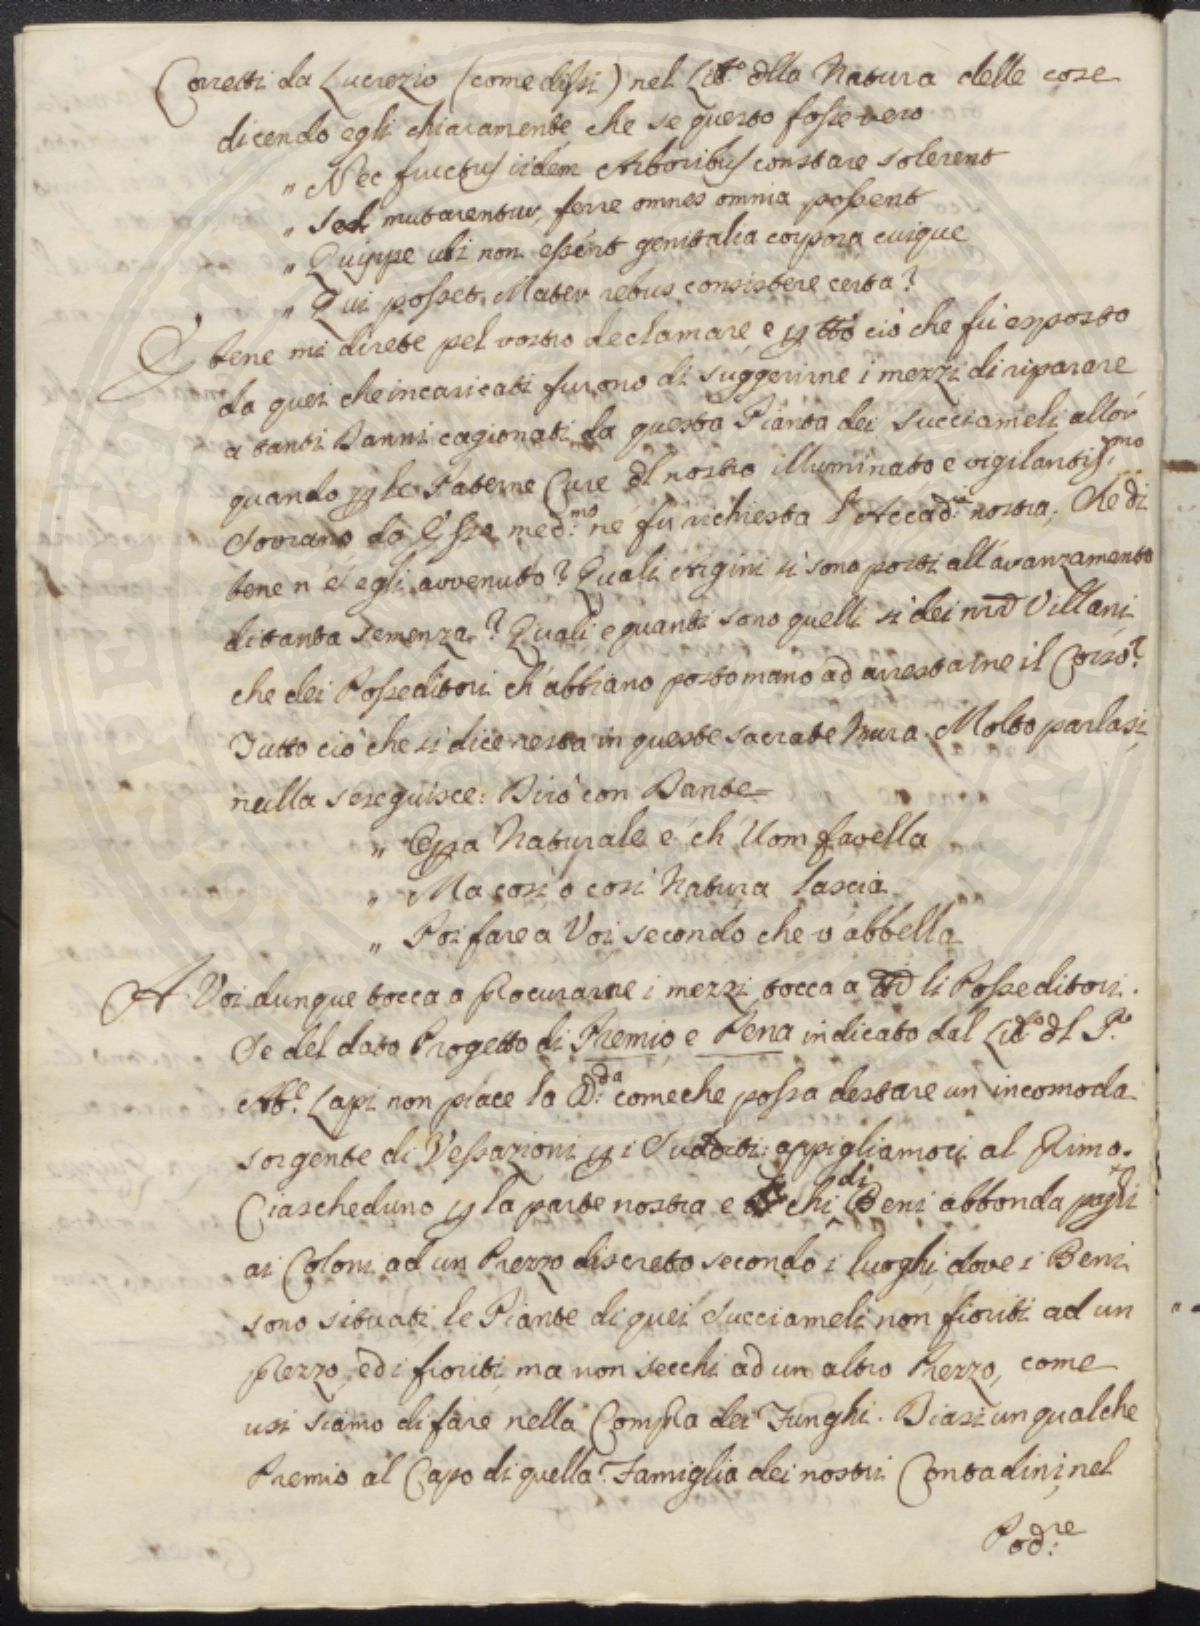 Corretti da Lucrezio (come dissi) nel Lib.º dlla Natura delle cose
dicendo egli chiaramente che se questo fosse vero
„ Nec fructus iidem Arboribus constare solerent
„ Sed mutarentur, ferre omnes omnia possent
„ Quippe ubi non essent genitalia corpora cuique
„ Qui posset Mater rebus consistere certa?
E bene mi direte pel vostro declamare, e p ttò ciò che fù esposto
da quei che incaricati furono di suggerirne i mezzi di riparare
a tanti Danni cagionati da questa Pianta dei Succiameli allor
quando p le Paterne Cure dl nostro illuminato e vigilantiss.mo
Sovrano da Esso med.mo ne fù richiesta l'Accad.ia nostra, Che di
bene n'è egli avvenuto? Quali Argini si sono posti all'avanzamento
di tanta semenza? Quali e quanti sono quelli si dei nrd Villani
che dei Posseditori ch'abbiano posto mano ad arrestarne il Corso?
Tutto ciò che si dice resta in queste sacrate Mura. Molto parlasi,
nulla s'eseguisce: Dirò con Dante
„ Opra Naturale è ch'Uom favella
„ Ma così o così Natura lascia
„ Poi fare a Voi secondo che v'abbella
A Voi dunque tocca a procurarne i mezzi tocca a li Posseditori.
Se del dato Progetto di Premio e Pena indicato dal Lib.º dl P.º
Ab.e Lapi non piace la 2.da comeche possa destare un incomoda
sorgente di Vessazioni p i Sudditi: appigliamoci al Primo.
Ciascheduno p la parte nostra e chi di Beni abbonda paghi
ai Coloni ad un Prezzo discreto secondo i luoghi dove i Beni
sono situati le Piante di quei Succiameli non fioriti ad un
prezzo, ed i fioriti, ma non secchi ad un altro Prezzo, come
usi siamo di fare nella Compra dei Funghi. Diasi un qualche
Premio al Capo di quella Famiglia dei nostri Contadini, nel
Pod.re